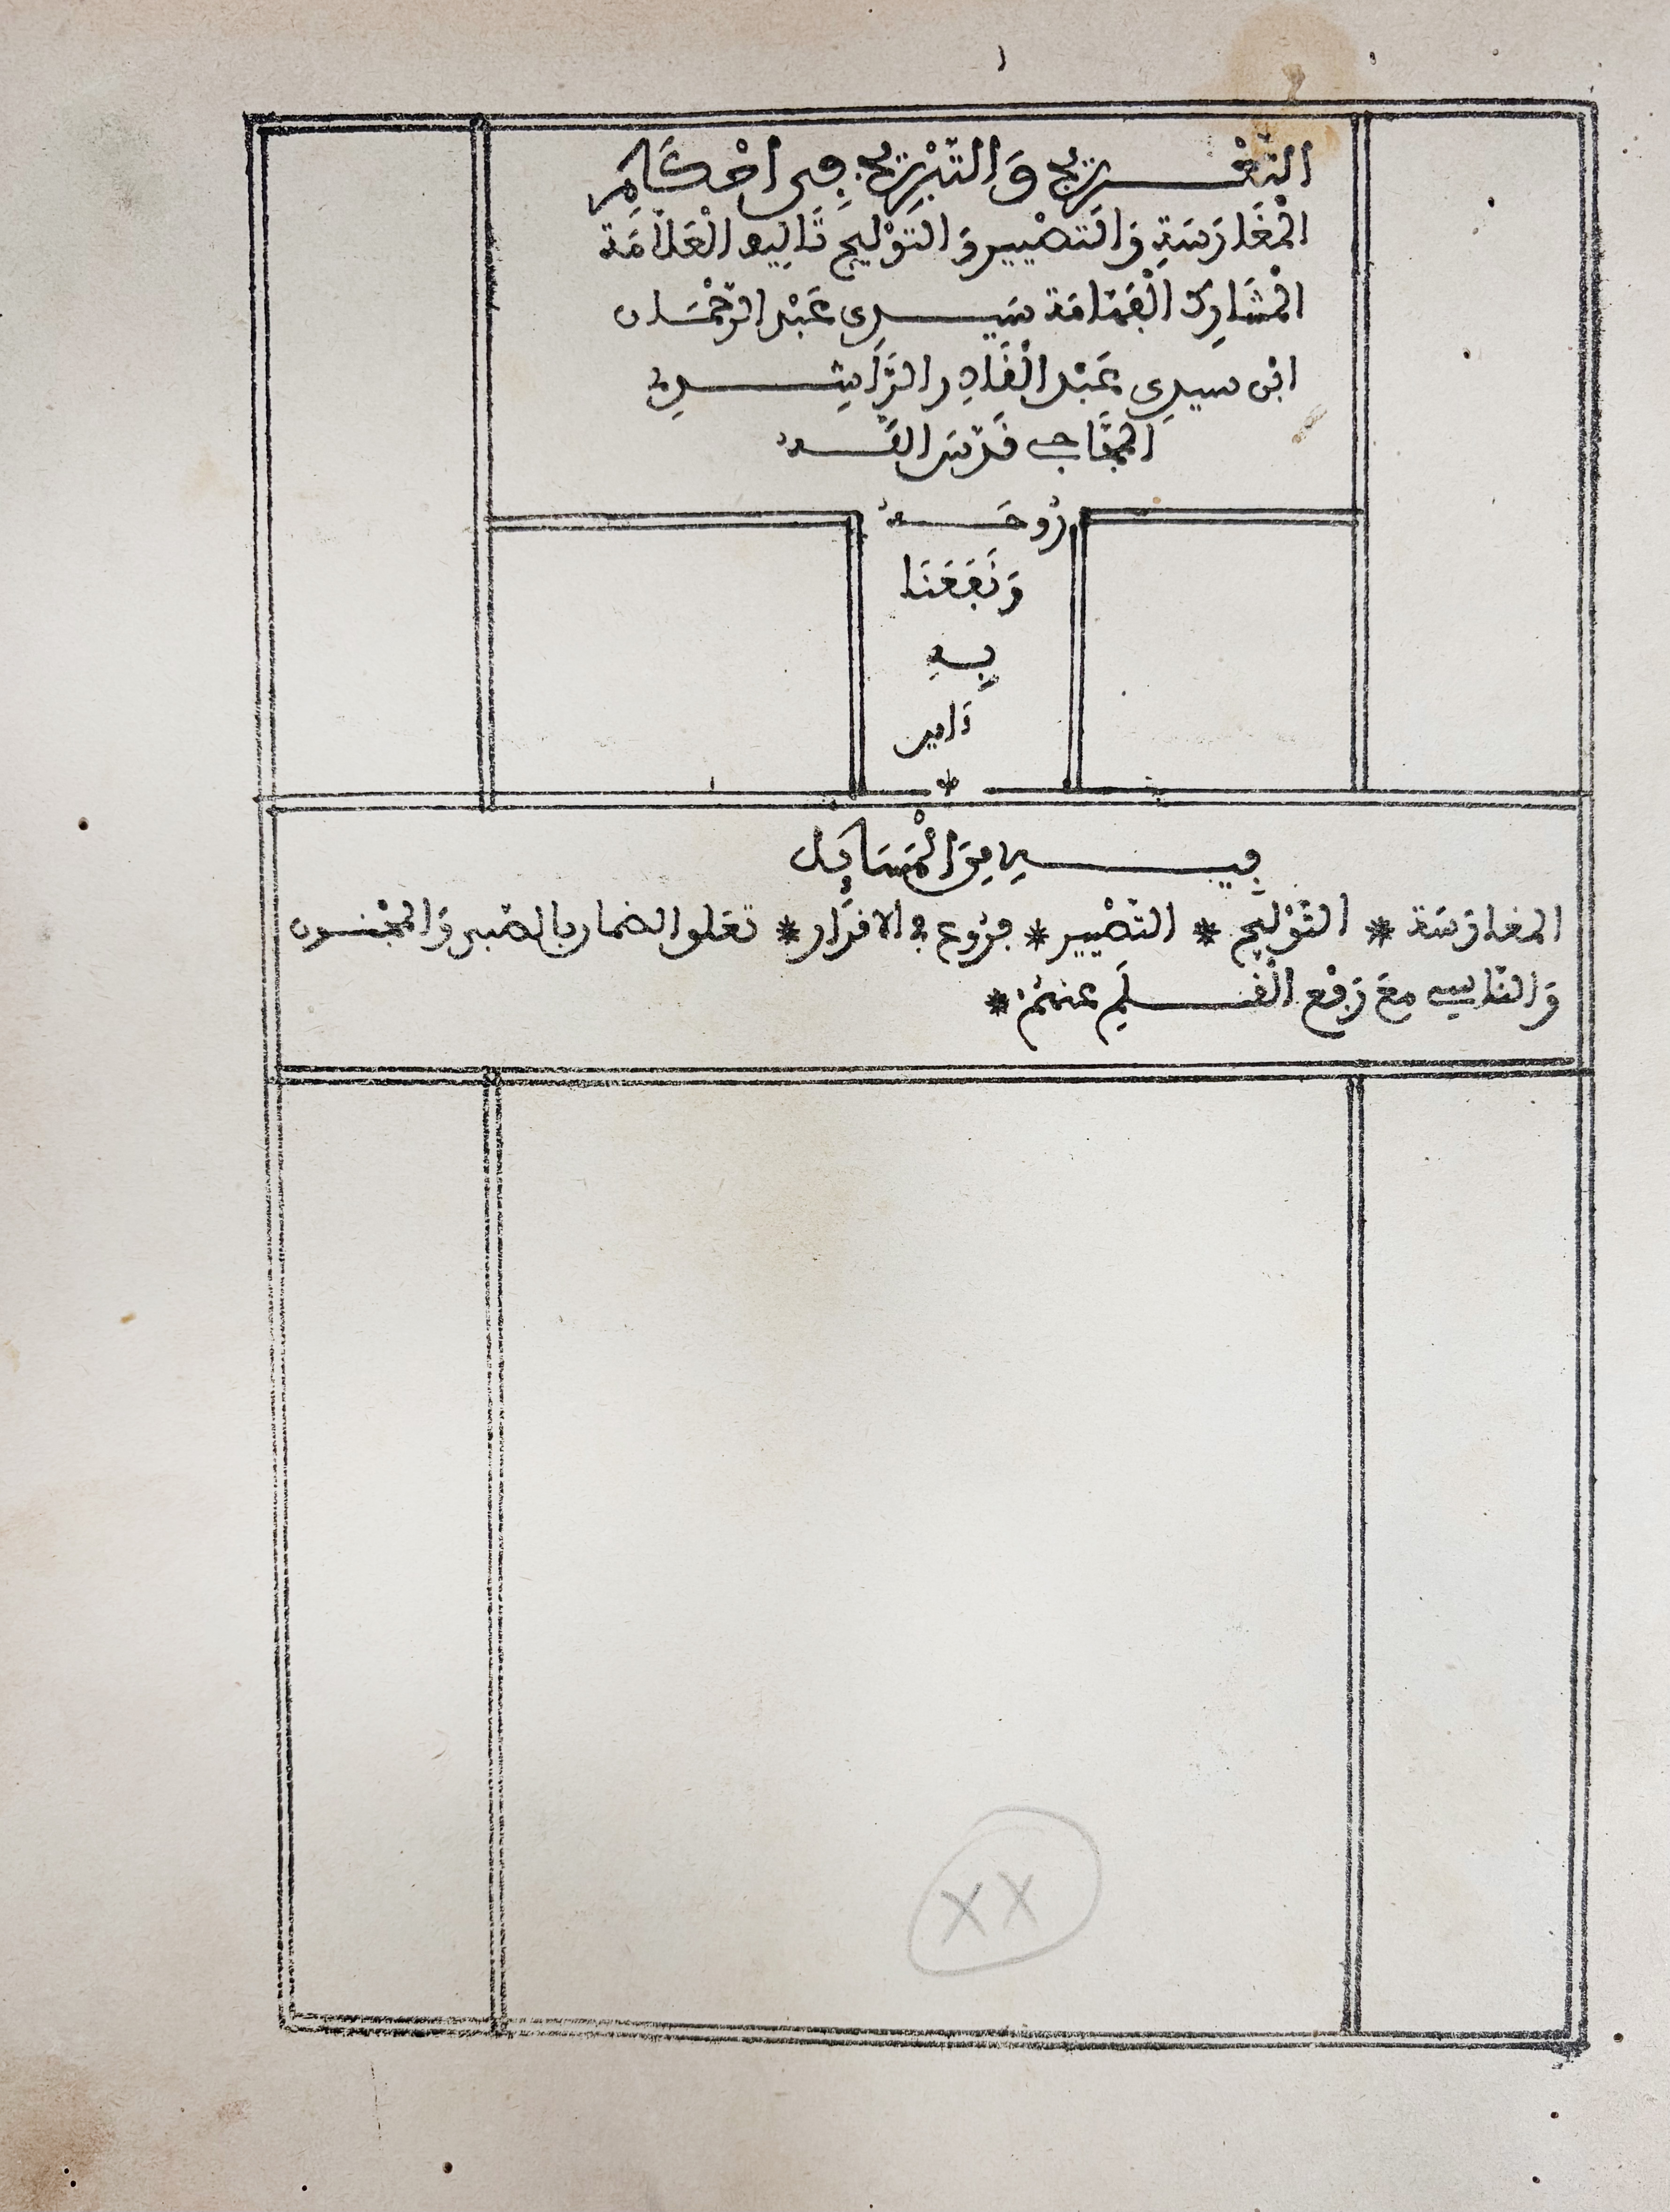 ١
التَّعْرِيج وَالتَّبْرِيج فِي احْكَامِ
الْمُغَارَسَةِ وَالتَّصْيِيرِ وَالتَّوْلِيجِ تَالِيف الْعَلاَّمَة
الْمُشَارِك الْفَهَّامَة سَيِدِي عَبْد الرَّحْمَان
ابْن سيدِي عَبْد الْقَادِر الرَّاشِدِي
الْمَجَّاجِي قَدَّسَ اللَّه
رُوحَهُ
وَنَفَعَنَا
بِهِ
ءَامِين
*
فِيهِ مِنَ الْمَسَايِل
المغارَسَة * التَّوْلِيج * التَّصْيِير * فرُوع في الاقْرَار * تعَلق الضمان بالصَّبي وَالمجْنُون
وَالنَّايم مَعَ رَفْع الْقَلَمِ عنهُمْ *
XX